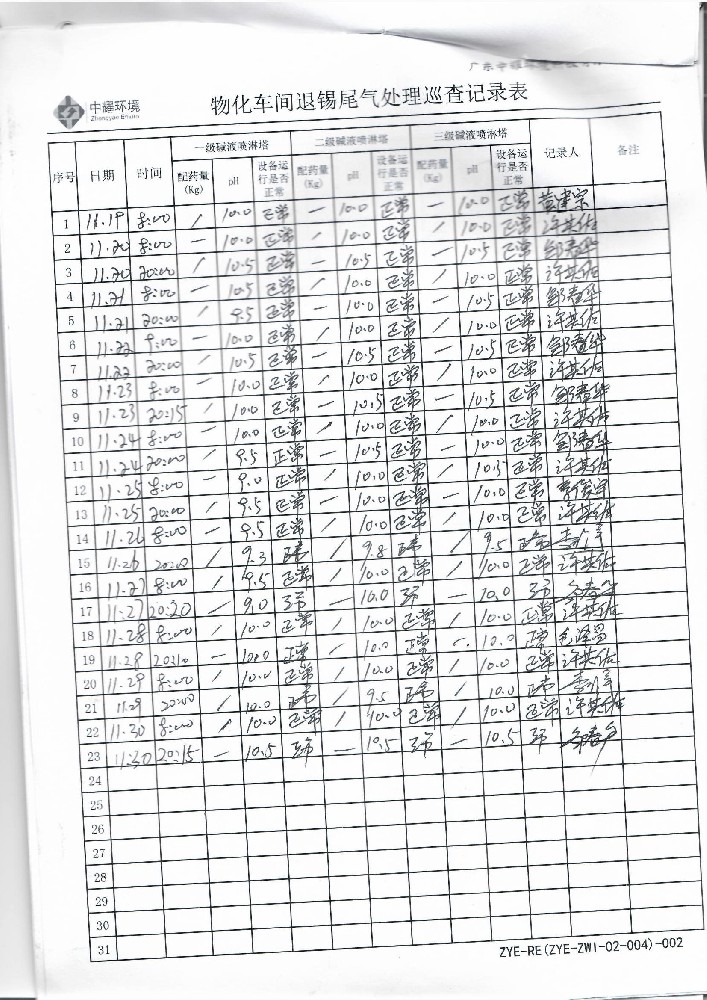 中耀环境
Zhongyao Enviro
物化车间退锡尾气处理巡查记录表
序号 日期 时间 一级碱液喷淋塔 二级碱液喷淋塔 三级碱液喷淋塔 记录人 备注
配药量(Kg) pH 设备运行是否正常 配药量(Kg) pH 设备运行是否正常 配药量(Kg) pH 设备运行是否正常
1 11.19 8:00 / 10.0 正常 — 10.0 正常 — 10.0 正常
2 11.20 8:00 — 10.0 正常 / 10.0 正常 / 10.0 正常 许其佑
3 11.20 20:00 / 10.5 正常 — 10.5 正常 — 10.5 正常
4 11.21 8:00 — 10.5 正常 / 10.0 正常 / 10.0 正常 许其佑
5 11.21 20:00 / 9.5 正常 — 10.0 正常 — 10.5 正常
6 11.22 8:00 — 10.0 正常 / 10.0 正常 / 10.0 正常 许其佑
7 11.22 20:00 / 10.5 正常 — 10.5 正常 — 10.5 正常
8 11.23 8:00 — 10.0 正常 / 10.0 正常 / 10.0 正常 许其佑
9 11.23 20:15 / 10.0 正常 — 10.5 正常 — 10.5 正常
10 11.24 8:00 — 10.0 正常 / 10.0 正常 / 10.0 正常 许其佑
11 11.24 20:00 / 9.5 正常 — 10.5 正常 — 10.0 正常
12 11.25 8:00 — 9.0 正常 / 10.0 正常 / 10.5 正常 许其佑
13 11.25 20:00 / 9.5 正常 — 10.0 正常 — 10.0 正常
14 11.26 8:00 — 9.5 正常 / 10.0 正常 / 10.0 正常 许其佑
15 11.26 20:00 / 9.3 正常 / 9.8 正常 / 9.5 正常
16 11.27 8:00 — 9.5 正常 / 10.0 正常 / 10.0 正常 许其佑
17 11.27 20:20 / 9.0 正常 — 10.0 正常 — 10.0 正常
18 11.28 8:00 / 10.0 正常 / 10.0 正常 / 10.0 正常 许其佑
19 11.28 20:10 — 10.0 正常 / 10.0 正常 — 10.0 正常
20 11.29 8:00 / 10.0 正常 / 10.0 正常 / 10.0 正常 许其佑
21 11.29 20:00 / 10.0 正常 / 9.5 正常 / 10.0 正常
22 11.30 8:00 / 10.0 正常 / 10.0 正常 / 10.0 正常 许其佑
23 11.30 20:15 — 10.5 正常 — 10.5 正常 — 10.5 正常
24
25
26
27
28
29
30
31
ZYE-RE(ZYE-ZWI-02-004)-002